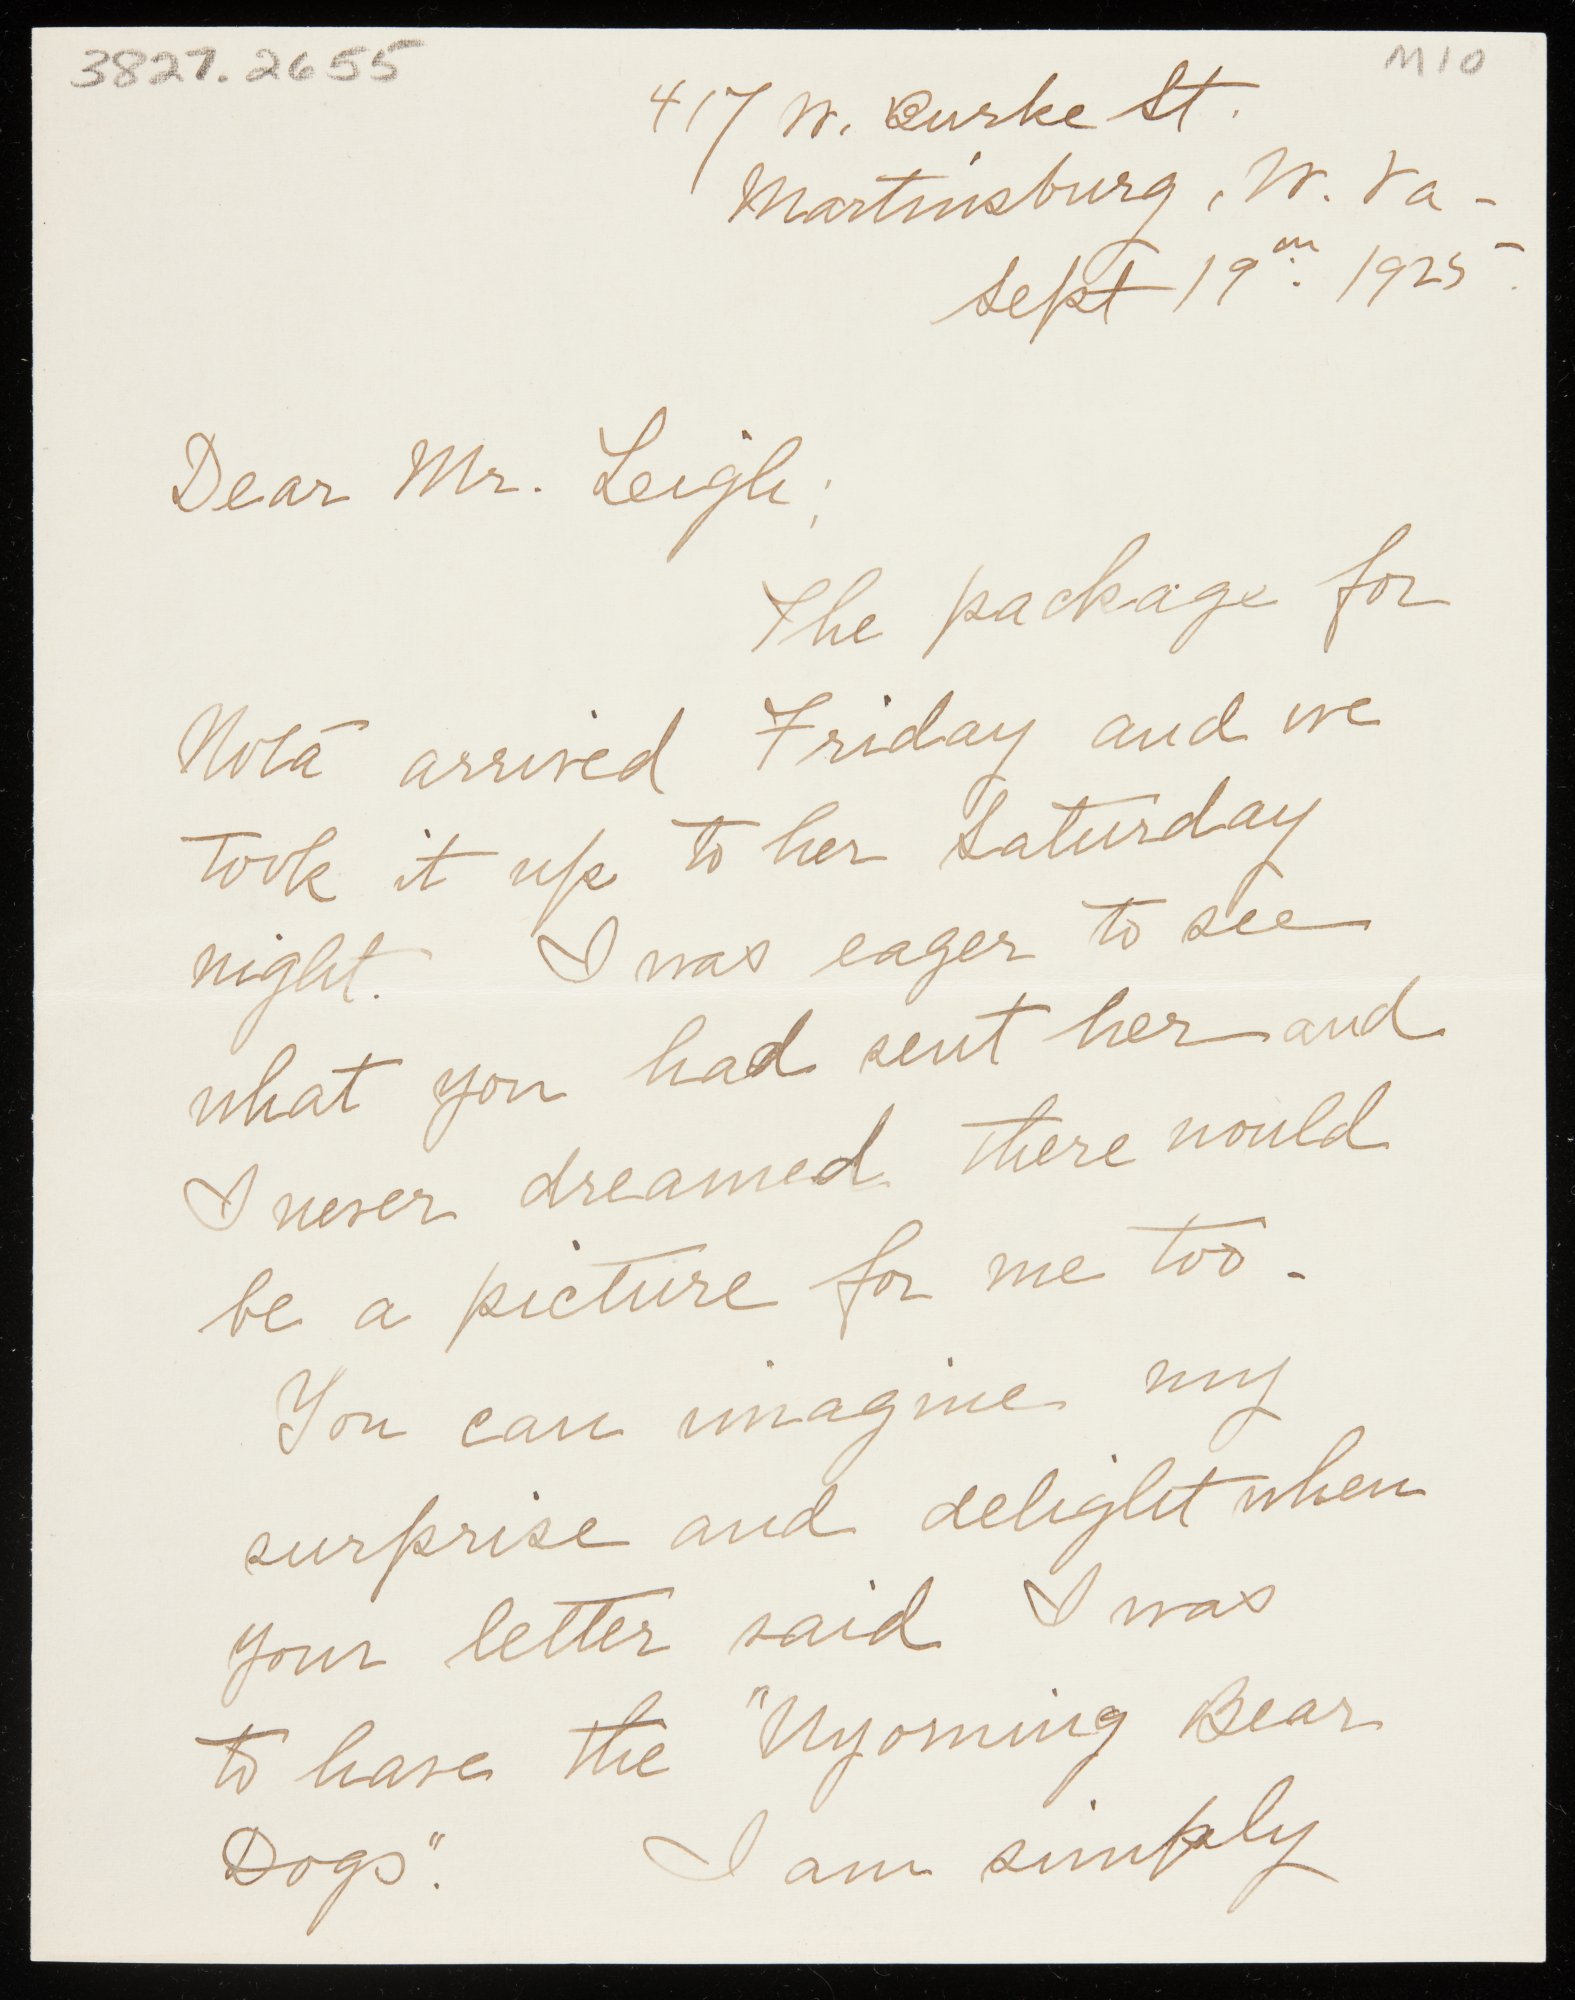 3827.2655
M10
417 W. Burke St.
Martinsburg, W. Va -
Sept 19th. 1925.
Dear Mr. Leigh;
The package for
Nota arrived Friday and we
took it up to her Saturday
night. I was eager to see
what you had sent her and
I never dreamed there would
be a picture for me too -
You can imagine my
surprise and delight when
your letter said I was
to have the "Wyoming Bear
Dogs". I am simply